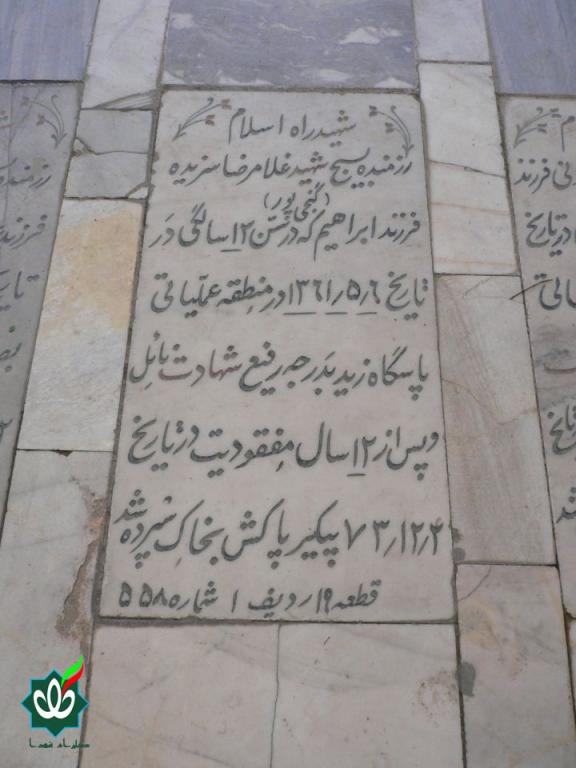 شهید راه اسلام
رزمنده بسیج شهید غلامرضا سنزیده
(گنجی پور)
فرزند ابراهیم که در سن ۱۲ سالگی در
تاریخ ۱۳۶۱٫۵٫۶ در منطقه عملیاتی
پاسگاه زید بدرجه رفیع شهادت نائل
و پس از ۱۲ سال مفقودیت در تاریخ
۷۳٫۱۲٫۴ پیکیر پاکش بخاک سپرده شد
قطعه ۱۹ ردیف ۱ شماره ۵۵۸
رزمنده
فرزند
تاریخ
فرزند
در تاریخ
گلزار شهدا